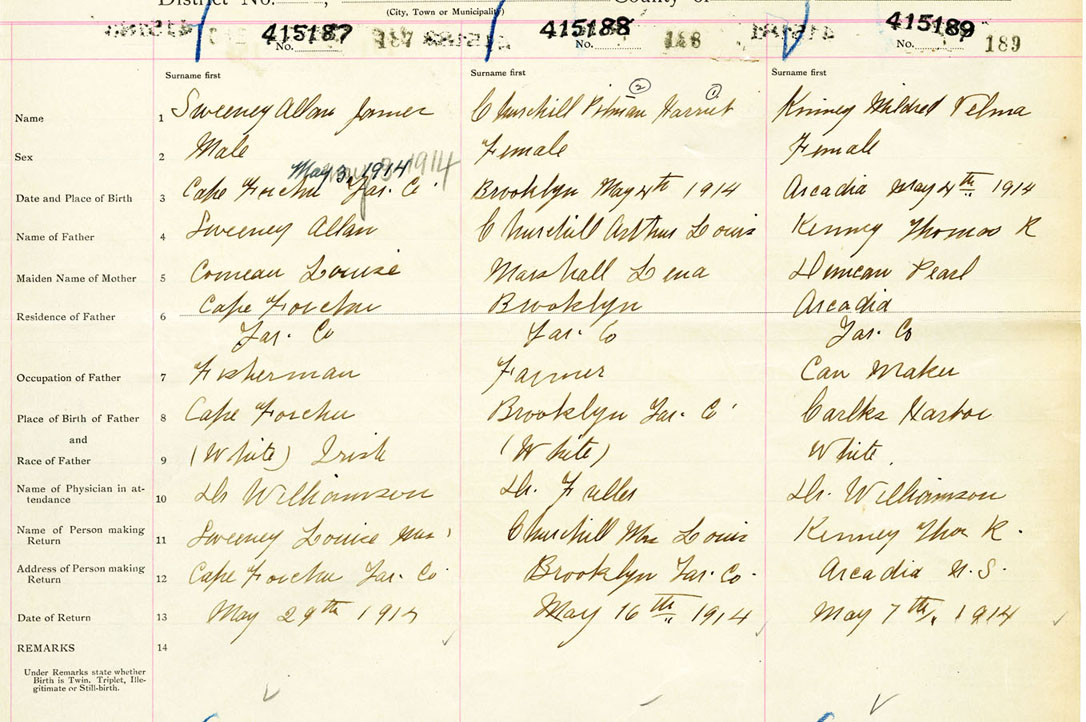 District No. , County of
(City, Town or Municipality)
415187 No. 187
415188 No. 188
415189 No. 189
Surname first Surname first Surname first
Name 1 Sweeney Allan James Churchill Pitman ② Harriet ① Kinney Mildred Velma
Sex 2 Male Female Female
May 3, 1914
Date and Place of Birth 3 Cape Forchu Yar. Co Brooklyn May 4th 1914 Arcadia May 4th 1914
Name of Father 4 Sweeney Allan Churchill Arthur Louis Kenney Thomas R
Maiden Name of Mother 5 Comeau Louise Marshall Lena Duncan Pearl
Residence of Father 6 Cape Forchu Brooklyn Arcadia
Yar. Co Yar. Co Yar. Co
Occupation of Father 7 Fisherman Farmer Can Maker
Place of Birth of Father 8 Cape Forchu Brooklyn Yar. Co Harbor
and
Race of Father 9 (White) Irish (White) White
Name of Physician in at-
tendance 10 Dr Williamson Dr. Fuller Dr. Williamson
Name of Person making
Return 11 Sweeney Louise Mrs Churchill Mrs Louis Kenney Thos R.
Address of Person making
Return 12 Cape Forchu Yar. Co Brooklyn Yar. Co. Arcadia N.S.
Date of Return 13 May 29th 1914 May 16th 1914 May 7th, 1914
REMARKS 14
Under Remarks state whether
Birth is Twin. Triplet, Ille-
gitimate or Still-birth.